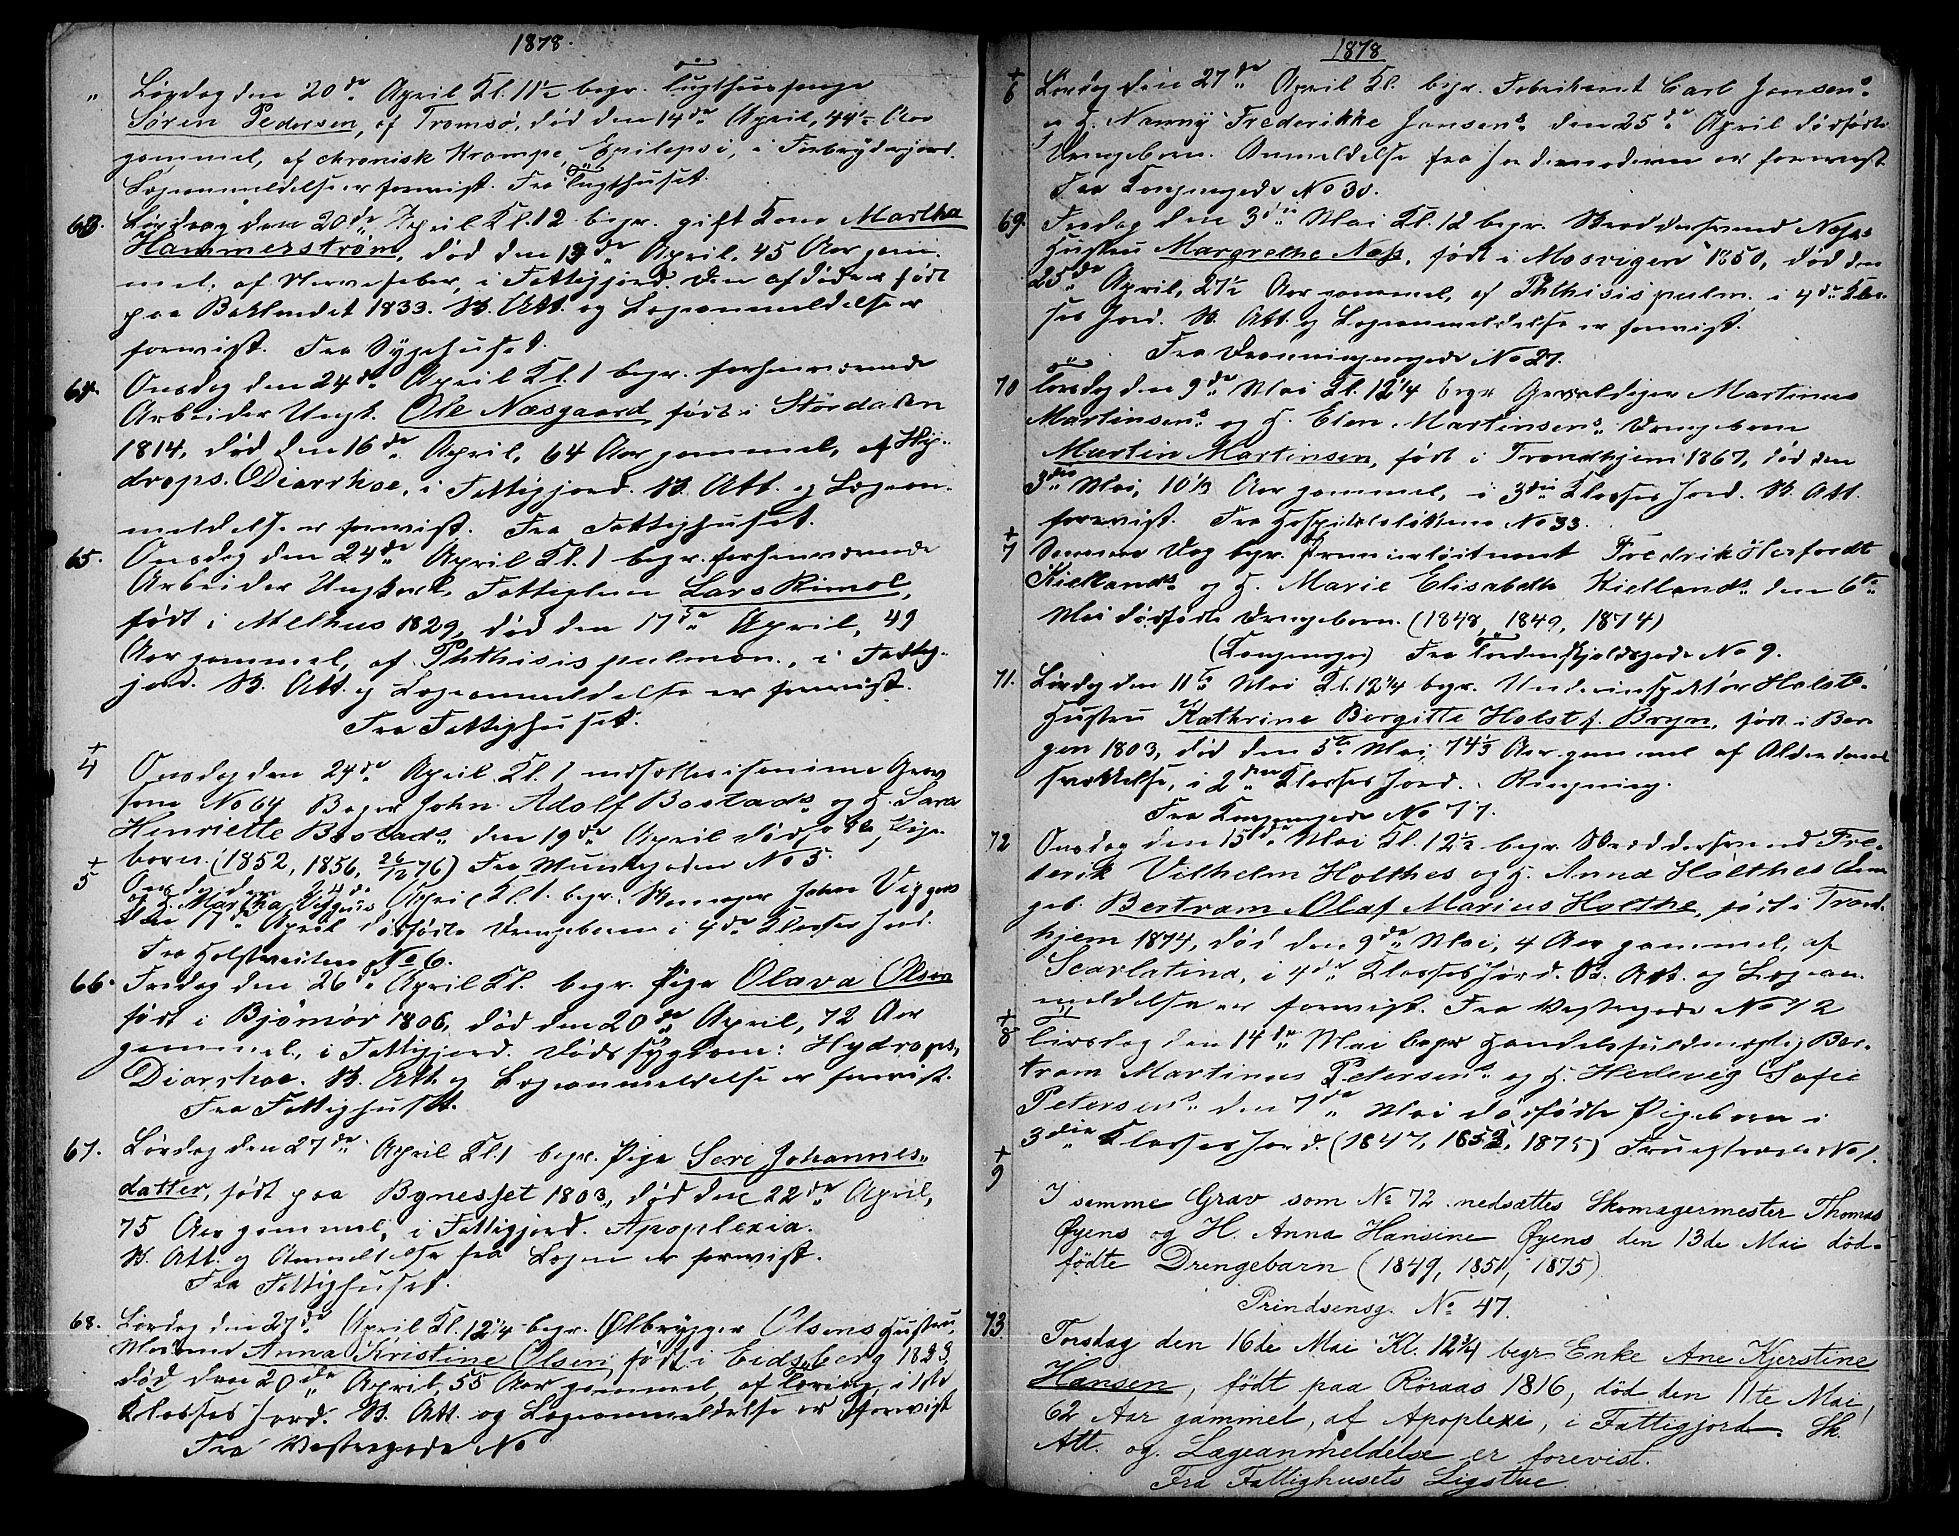 1878.
" Lørdag den 20de April Kl. 11½ begr. Tugthusfange
Søren Pedersen, af Tromsø, død den 14de April, 44½ Aar
gammel, af chronisk Krampe, Epilepsi, i Forbryderjord.
Lægeanmeldelse er forevist. Fra Tugthuset.
63. Lørdag den 20de April Kl. 12 begr. gift Kone Martha
Hammerstrøm, død den 13de April, 45 Aar gam-
mel, af Nervefeber, i Fattigjord. Den afdøde er født
paa Baklandet 1833. Sk. Att. og Lægeanmeldelse er
forevist. Fra Sygehuset.
64. Onsdag den 24de April Kl. 1 begr. forhenværende
Arbeider Ungk. Ole Næsgaard, født i Størdalen
1814, død den 16de April, 64 Aar gammel, af Hy-
drops. Diarrhoe, i Fattigjord. Sk. Att. og Lægean-
meldelse er forevist. Fra Fattighuset.
65. Onsdag den 24de April Kl. 1 begr. forhenværende
Arbeider Ungkarl, Fattiglem Lars Rimol,
født i Melhus 1829, død den 17de April, 49
Aar gammel, af Phthisis pulmon., i Fattig-
jord. Sk. Att. og Lægeanmeldelse er forevist.
Fra Fattighuset.
+
4 Onsdag den 24de April Kl. 1 nedsattes i samme Grav
som No 64 Bager John Adolf Bostads og H. Sara
Henriette Bostads den 19de April dødfødte Pige-
barn. (1852, 1856, 26/12 76) Fra Munkegaden No 5.
+
5 Onsdag den 24de April Kl. 1. begr. John Viggens
og H. Martha Viggens
den 17de April dødfødte Drengebarn i 4de Klasses Jord.
Fra Holstveiten No 6.
66. Fredag den 26de April Kl. begr. Pige Olava Olsen
født i Bjørnør 1806, død den 20de April, 72 Aar
gammel, i Fattigjord. Dødssygdom: Hydrops,
Diarrhoe. Sk. Att. og Lægeanmeldelse er forevist.
Fra Fattighuset.
67. Lørdag den 27de April Kl. 1 begr. Pige Seri Johannes-
datter, født paa Bynesset 1803, død den 22de April,
75 Aar gammel, i Fattigjord. Apoplexia.
Sk. Att. og Anmeldelse fra Lægen er forevist.
Fra Fattighuset.
68. Lørdag den 27de April Kl. 12¼ begr. Ølbrygger Olsens Hustru,
Anna Kristine Olsen, født i Eidsberg 1823,
død den 20de April, 55 Aar gammel, af i 1ste
Klasses Jord. Sk. Att. og Lægeanmeldelse er forevist
Fra Vestregade No
1878
+
6 Lørdag den 27de April Kl. begr. Fabrikant Carl Jensens
og H. Nanny Frederikke Jensens den 25de April dødfødte
Drengebarn. Anmeldelse fra Jordemoderen er forevist
Fra Kongensgade No 30.
69. Fredag den 3die Mai Kl. 12 begr. Skræddersvend Næss
Hustru Margrethe Næss, født i Mosvigen 1850, død den
25de April, 27½ Aar gammel, af Phthisis pulm. i 4de Klas-
ses Jord. Sk. Att. og Lægeanmeldelse er forevist.
Fra Dronningensgade No 27.
70 Torsdag den 9de Mai Kl. 12¼ begr. Gevaldiger Martinus
Martinsens og H. Elen Martinsens Drengebarn
Martin Martinsen, født i Trondhjem 1867, død den
3die Mai, 10⅓ Aar gammel, i 3die Klasses Jord. Sk. Att.
forevist. Fra Hospitalsløkkene No 33.
+
7 Samme Dag begr. Premierløitnant Fredrik Herfordt
Kiellands og H. Marie Elisabeth Kiellands den 6te
Mai dødfødte Drengebarn. (1848, 1849, 1874)
(Kongensgd) Fra Tordenskjoldsgade No 9.
71. Lørdag den 11te Mai Kl. 12¼ begr. Underinspektør Holsts
Hustru Kathrine Bergitte Holst f. Bryn, født i Ber-
gen 1803, død den 5te Mai, 74⅓ Aar gammel af Alderdoms-
svækkelse, i 2den Klasses Jord. Ringning.
Fra Kongensgade No 77.
72 Onsdag den 15de Mai Kl. 12½ begr. Skræddersvend Fre-
derik Vilhelm Holthes og H. Anna Holthes Dren-
geb. Bertram Olaf Marius Holthe, født i Trond-
hjem 1874, død den 9de Mai, 4 Aar gammel, af
Scarlatina, i 4de Klasses Jord. Sk. Att. og Lægean-
meldelse er forevist. Fra Vestregade No 12
+
8 Tirsdag den 14de Mai begr. Handelsfuldmægtig Ber-
tram Martinus Petersens og H. Hedevig Sofie
Petersens den 7de Mai dødfødte Pigebarn i
3die Klasses Jord. (1847, 1852, 1875) No 1.
+
9
I samme Grav som No 72 nedsættes Skomagermester Thomas
Øyens og H. Anna Hansine Øyens den 13de Mai død-
fødte Drengebarn (1849, 1851, 1875)
Prindsensg. No 47.
73
Torsdag den 16de Mai Kl. 12¾ begr. Enke Ane Kjerstine
Hansen, født paa Röraas 1816, død den 11te Mai,
62 Aar gammel, af Apoplexi, i Fattigjord. Sk.
Att. og Lægeanmeldelse er forevist.
Fra Fattighusets Ligstue.